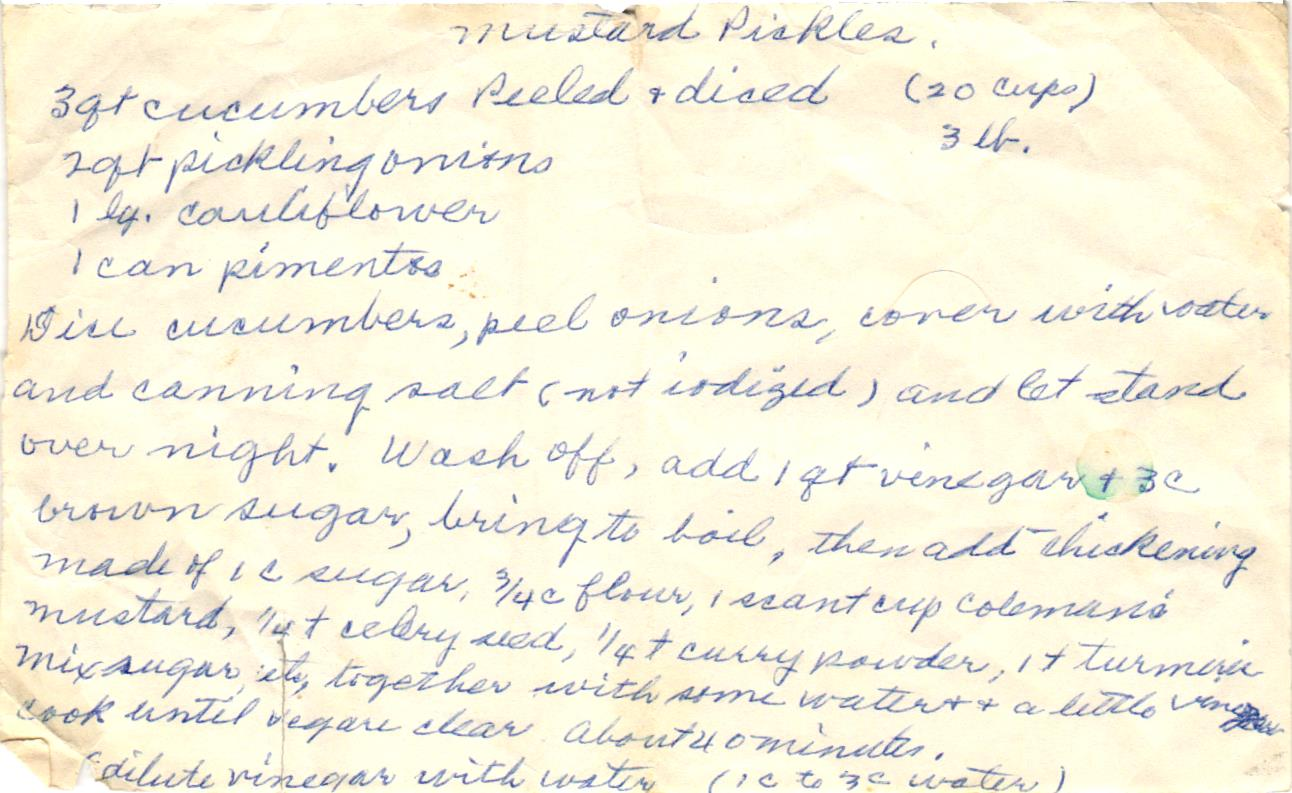 Mustard Pickles.
3qt cucumbers Peeled + diced (20 cups)
3 lb.
2qt pickling onions
1 lg. cauliflower
1 can pimentos
Dice cucumbers, peel onions, cover with water
and canning salt (not iodized) and let stand
over night. Wash off, add 1 qt vinegar + 3c
brown sugar, bring to boil, then add thickening
made of 1 c sugar, 3/4c flour, 1 scant cup Coleman's
mustard, 1/4 t celery seed, 1/4 t curry powder, 1 t turmeric
Mix sugar, etc, together with some water + a little
cook until vegare clear about 40 minutes.
dilute vinegar with water (1c to 3c water)